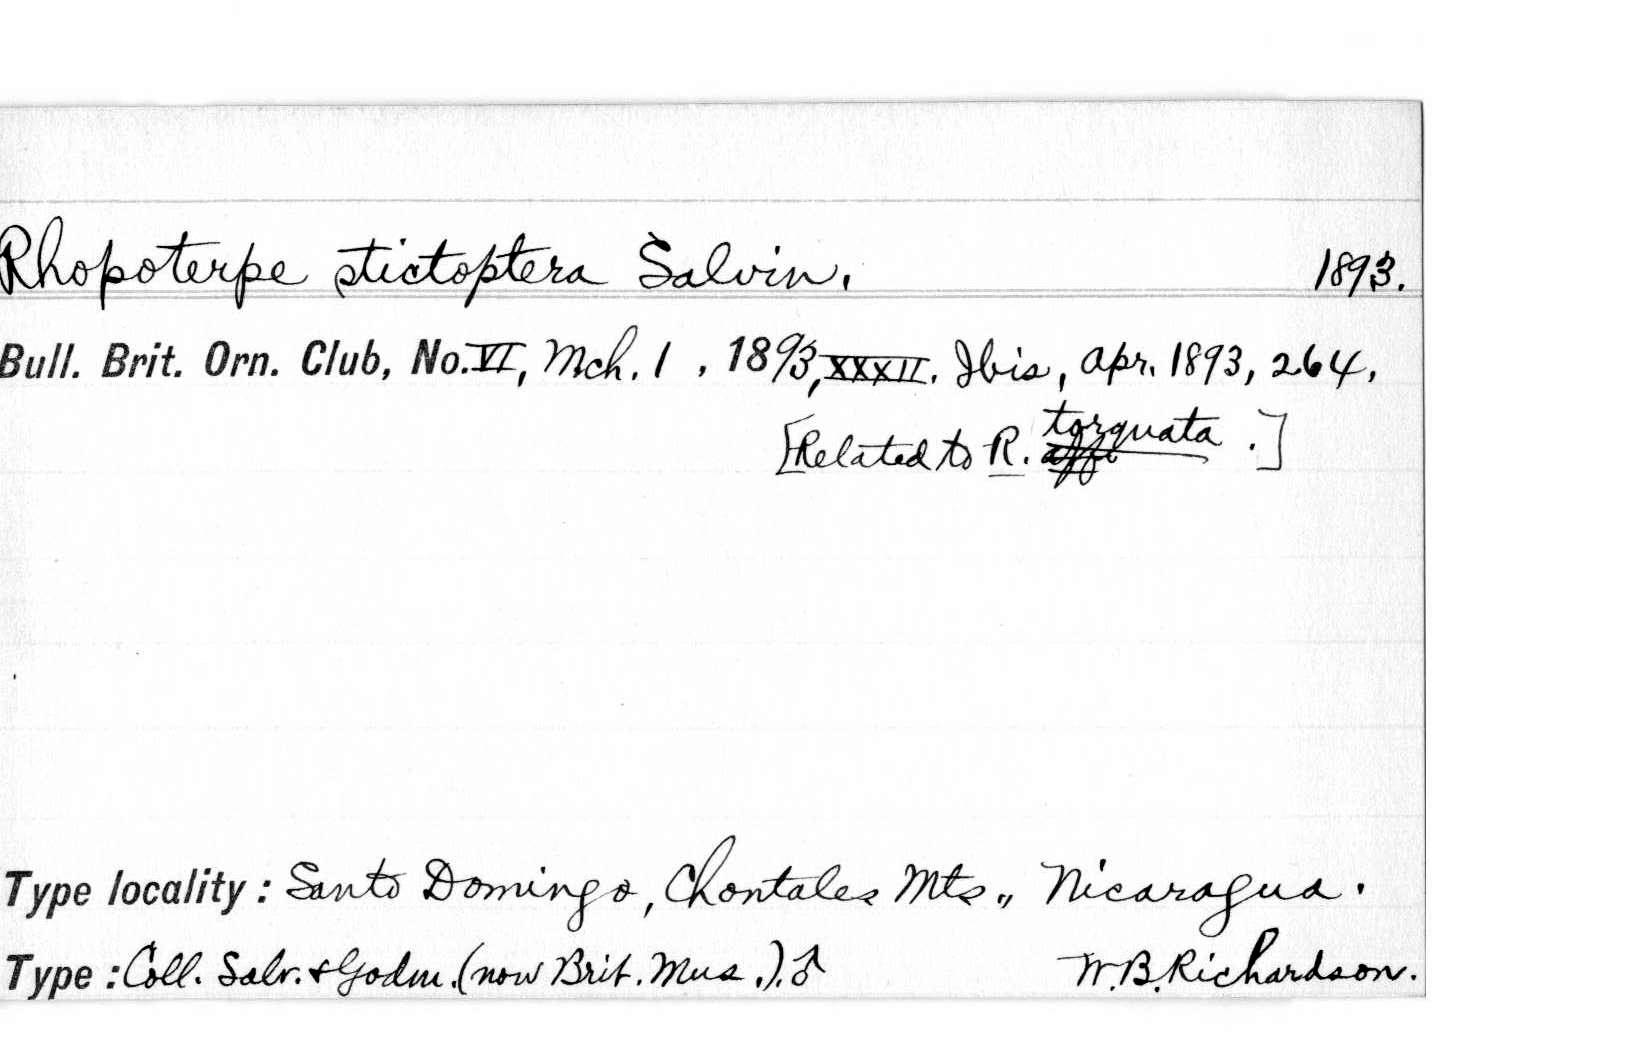 Rhopoterpe stictoptera Salvin. 1893.
Bull. Brit. Orn. Club, No. VI, Mch. 1 , 1893, XXXII. Ibis, Apr. 1893, 264,
[Related to R. affi torquata .]
Type locality : Santo Domingo, Chontales Mts., Nicaragua.
Type : Coll. Salv. & Godm. (now Brit. Mus.). ♂ W.B. Richardson.